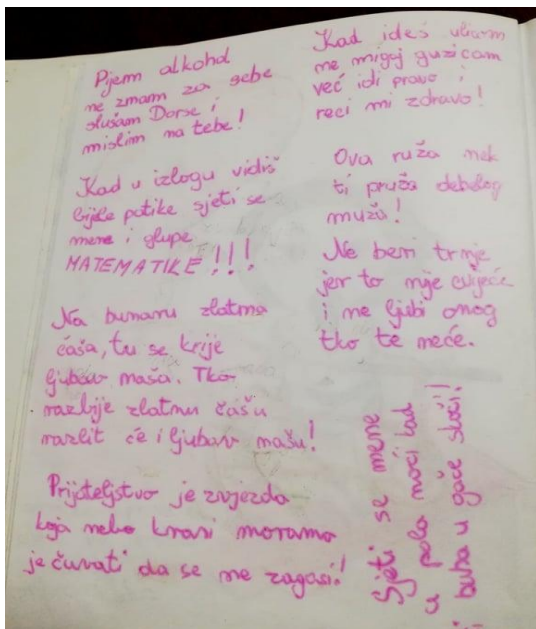 Pijem alkohol
ne znam za sebe
slušam Dorse i
mislim na tebe!
Kad u izlogu vidiš
bijele patike sjeti se
mene i glupe
MATEMATIKE!!!
Na bunaru zlatna
čaša, tu se krije
ljubav naša. Tko
razbije zlatnu čašu
razlit će i ljubav našu!
Prijateljstvo je zvjezda
koja nebo krasi moramo
je čuvati da se ne zagasi!
Kad ideš ulicom
ne migaj guzicom
već idi pravo i
reci mi zdravo!
Ova ruža nek
ti pruža debelog
muža!
Ne beri trnje
jer to nije cvijeće
i ne ljubi onog
tko te neće.
Sjeti se mene
u pola noći kad
buha u gaće skoči!